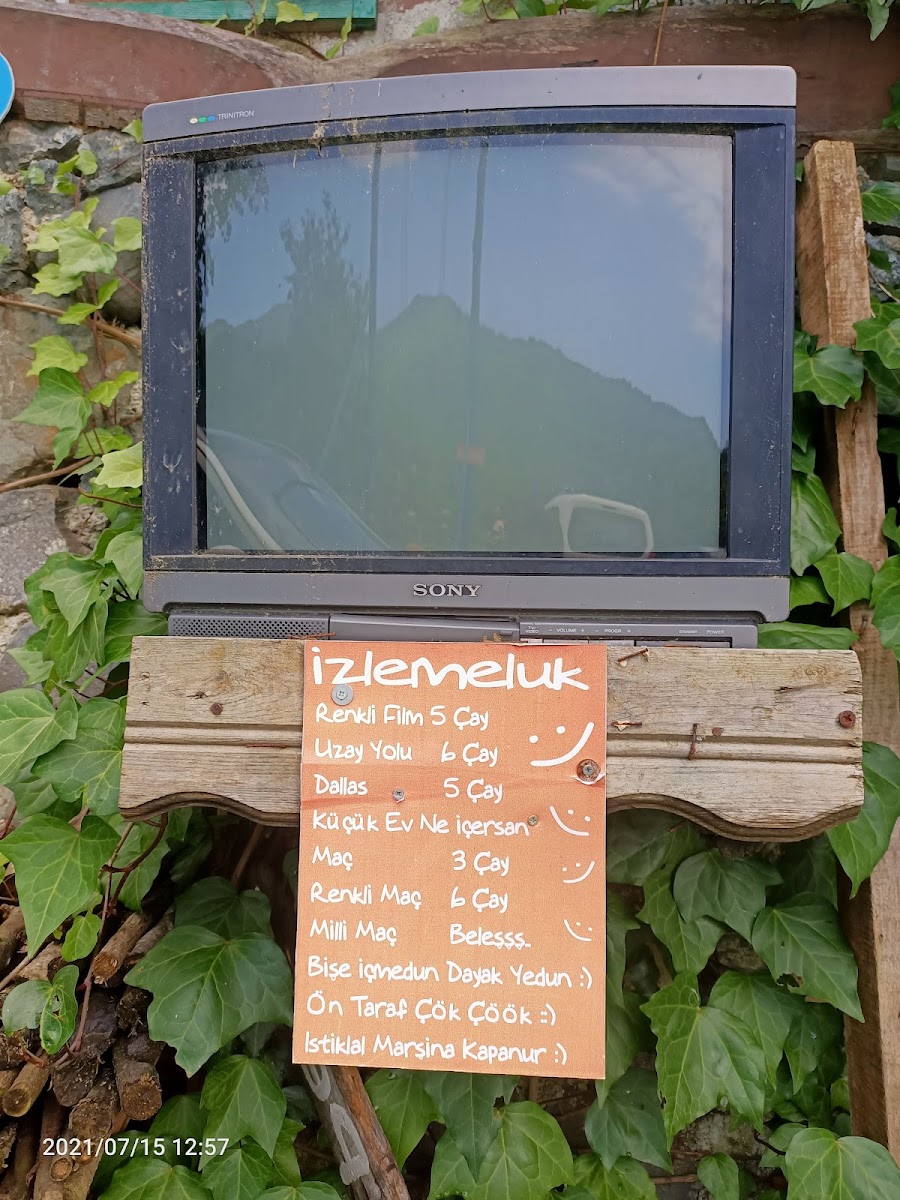 TRINITRON
SONY
TV
VIDEO
- VOLUME +
- PROGR +
STANDBY
POWER
izlemeluk
Renkli Film 5 Çay
Uzay Yolu 6 Çay
Dallas 5 Çay
Küçük Ev Ne içersan
Maç 3 Çay
Renkli Maç 6 Çay
Milli Maç Beleşşş..
Bişe içmedun Dayak Yedun :)
Ön Taraf Çök Çöök ::)
Istiklal Marşina Kapanur :)
2021/07/15 12:57